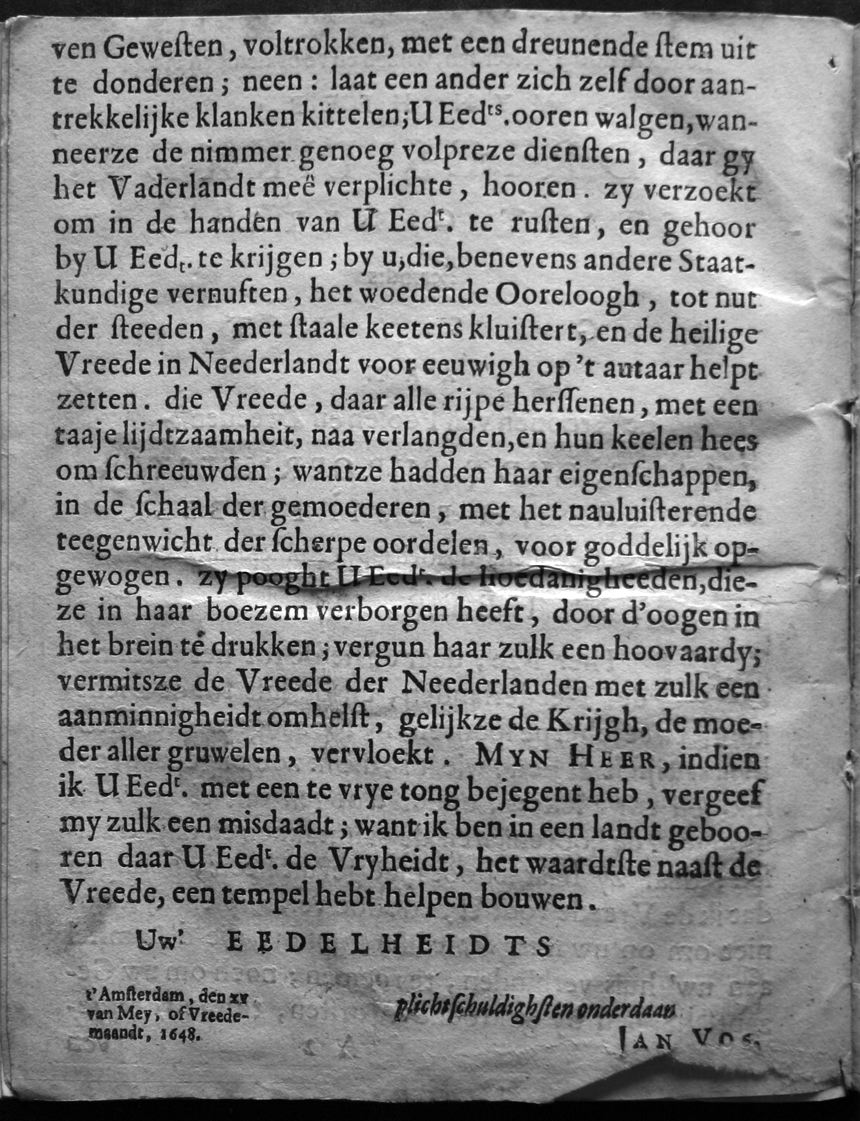 ven Geweſten, voltrokken, met een dreunende ſtem uit
te donderen; neen: laat een ander zich zelf door aan-
trekkelijke klanken kittelen; U Eedᵗˢ. ooren walgen, wan-
neerze de nimmer genoeg volpreze dienſten, daar gy
het Vaderlandt meê verplichte, hooren. zy verzoekt
om in de handen van U Eedᵗ. te ruſten, en gehoor
by U Eedₜ. te krijgen; by u, die, benevens andere Staat-
kundige vernuften, het woedende Ooreloogh, tot nut
der ſteeden, met ſtaale keetens kluiſtert, en de heilige
Vreede in Neederlandt voor eeuwigh op 't autaar helpt
zetten. die Vreede, daar alle rijpe herſſenen, met een
taaje lijdtzaamheit, naa verlangden, en hun keelen hees
om ſchreeuwden; wantze hadden haar eigenſchappen,
in de ſchaal der gemoederen, met het nauluiſterende
teegenwicht der ſcherpe oordelen, voor goddelijk op-
gewogen. zy pooght U Eedᵗ. de hoedanigheeden, die-
ze in haar boezem verborgen heeft, door d'oogen in
het brein te drukken; vergun haar zulk een hoovaardy;
vermitsze de Vreede der Neederlanden met zulk een
aanminnigheidt omhelſt, gelijkze de Krijgh, de moe-
der aller gruwelen, vervloekt. MYN HEER, indien
ik U Eedᵗ. met een te vrye tong bejegent heb, vergeef
my zulk een misdaadt; want ik ben in een landt geboo-
ren daar U Eedᵗ. de Vryheidt, het waardtſte naaſt de
Vreede, een tempel hebt helpen bouwen.
Uw' EEDELHEIDTS
t'Amſterdam, den xv
van Mey, of Vreede-
maandt, 1648.
plichtſchuldighſten onderdaan
JAN VOS.